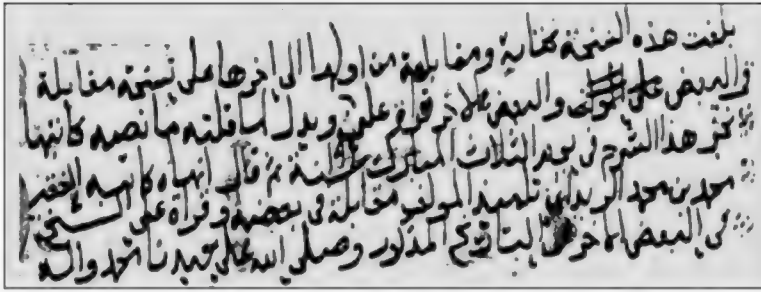 بلغت هذه النسخة بعناية ومقابلة من اولها الى اخرها على نسخة مقابلة
والبعض على المؤلف والبعض الاخر قراه على ما نصه كاتبها
هذا الشرح في يوم الثلاث المبارك سنة ثم قال انهاه كاتبه الفقير
محمد بن محمد تلميذ المولف مقابلة في بعضه وقراة على الشيخ
في البعض الاخر بالتاريخ المذكور وصلى الله على سيدنا محمد واله